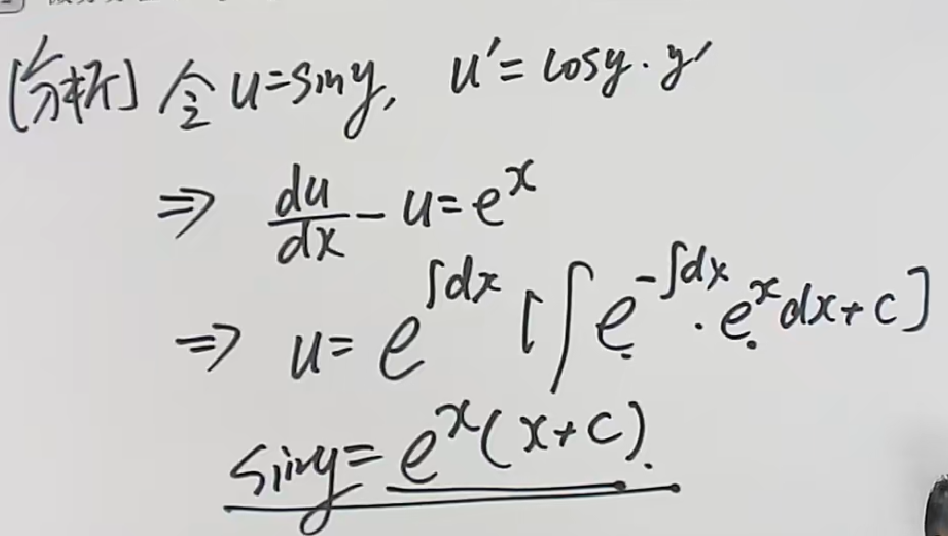 [分析] 令 u=siny, u'=cosy·y'
⇒ du/dx - u = e^x
⇒ u = e^{∫dx} [∫e^{-∫dx}·e^x dx + C]
siny = e^x(x+C).